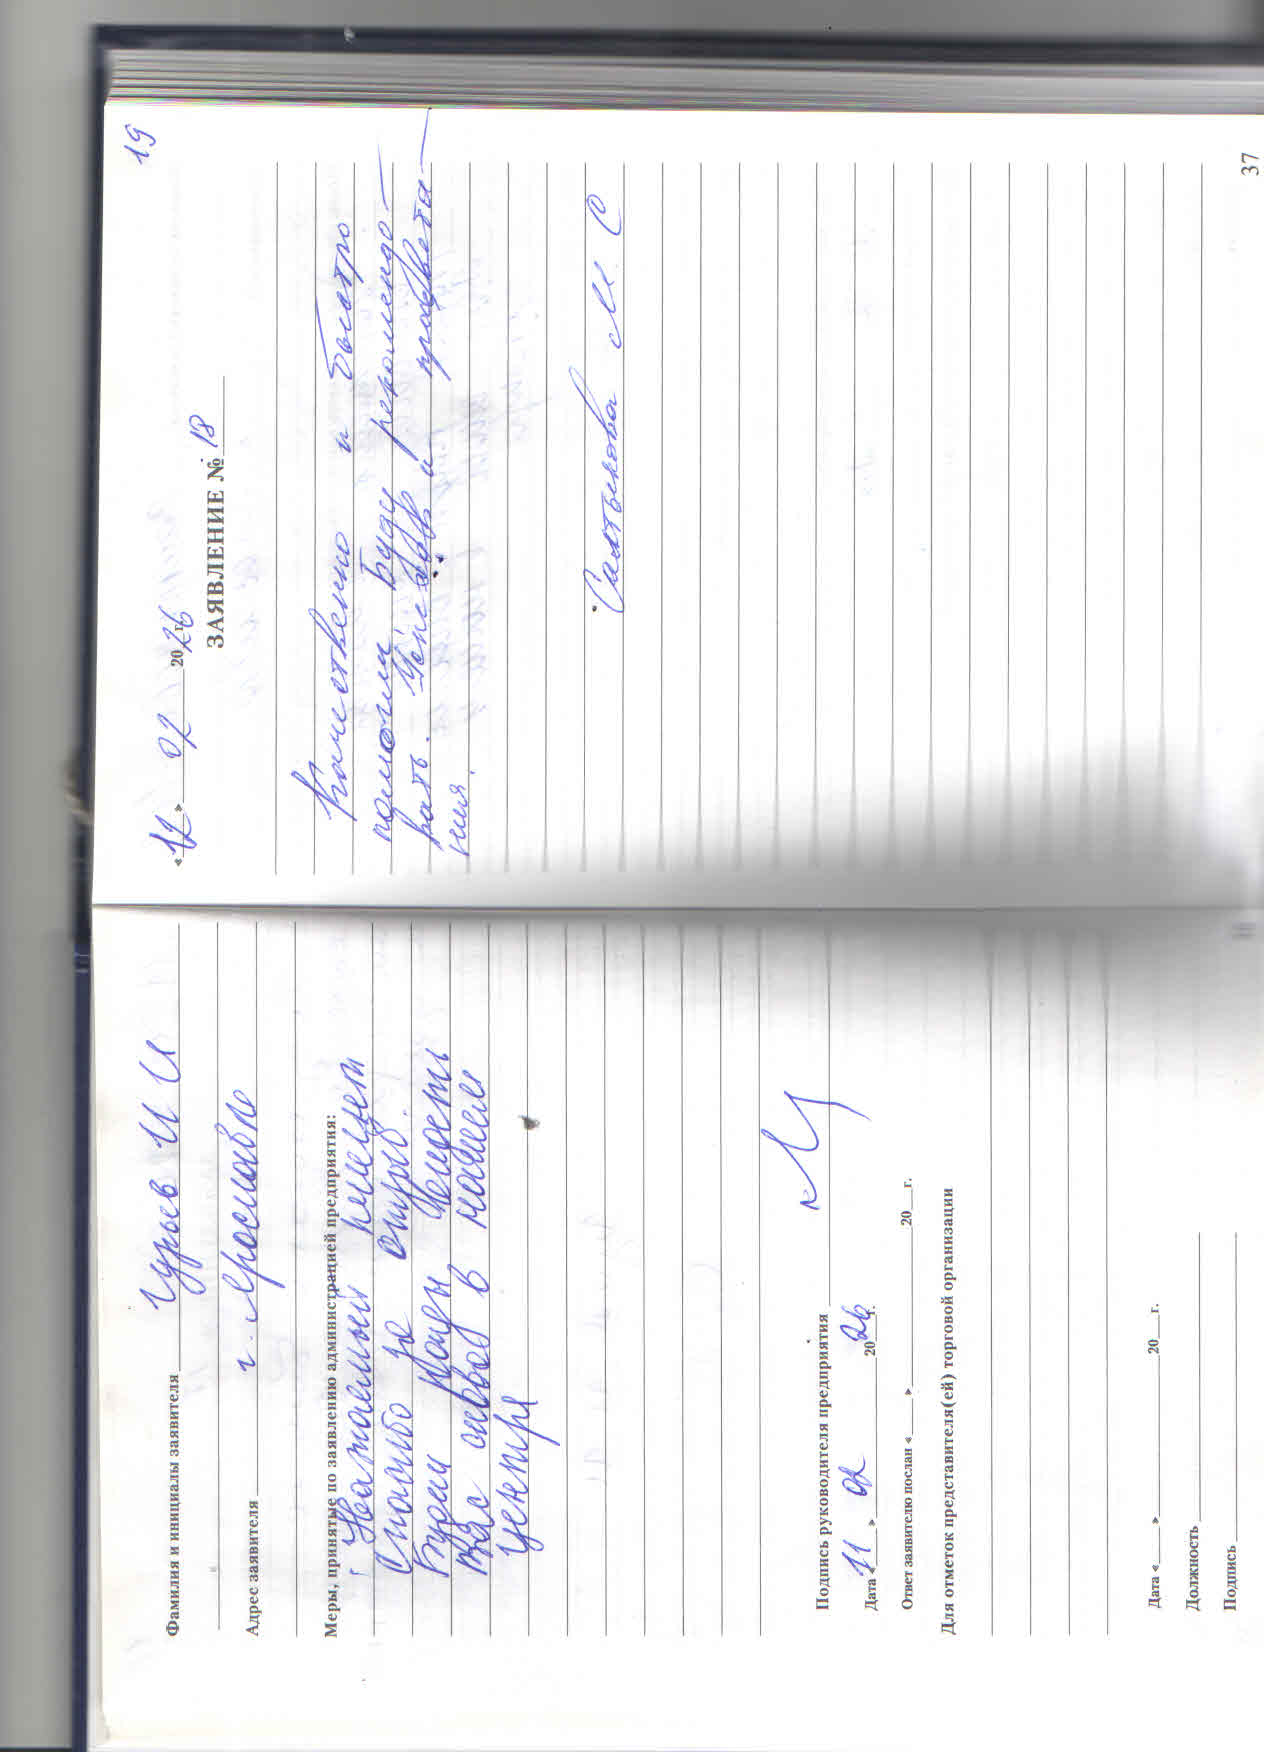 Фамилия и инициалы заявителя Гурьев И И
Адрес заявителя г. Ярославль
Меры, принятые по заявлению администрацией предприятия:
Уважаемый пациент
Спасибо за отзыв.
Будем рады видеть
Вас снова в нашем
центре
Подпись руководителя предприятия
Дата «11» 02 2026г.
Ответ заявителю послан «___» ___ 20__г.
Для отметок представителя(ей) торговой организации
Дата «___» ___ 20__г.
Должность
Подпись
19
«12» 02 2026 г.
ЗАЯВЛЕНИЕ № 18
Качественно и быстро
помогли. Буду рекомендо-
вать. Успехов и процвета-
ния.
М. С
37